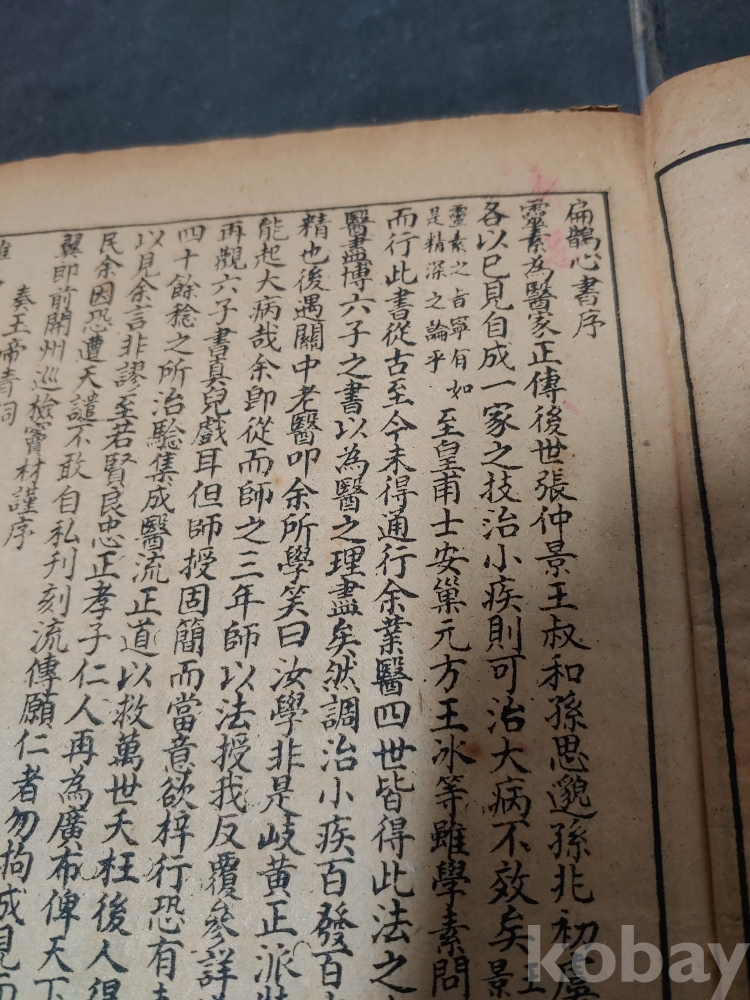 扁鵲心書序
靈素為醫家正傳後世張仲景王叔和孫思邈孫兆初虞
各以己見自成一家之技治小疾則可治大病不效矣
靈素之旨寧有如
是精深之論乎
至皇甫士安巢元方王冰等雖學素問
而行此書從古至今未得通行余業醫四世皆得此法之
醫盡博六子之書以為醫之理盡矣然調治小疾百發百
精也後遇關中老醫叩余所學笑曰汝學非是岐黃正派
能起大病哉余即從而師之三年師以法授我反覆參詳
再觀六子書真兒戲耳但師授固簡而當意欲梓行恐有
四十餘稔之所治驗集成醫流正道以救萬世夭枉後人得
以見余言非謬至若賢良忠正孝子仁人再為廣布俾天下
民余因恐遭天譴不敢自私刊刻流傳願仁者勿拘成見
翼即前開州巡檢竇材謹序
秦王帝青詞
kobay